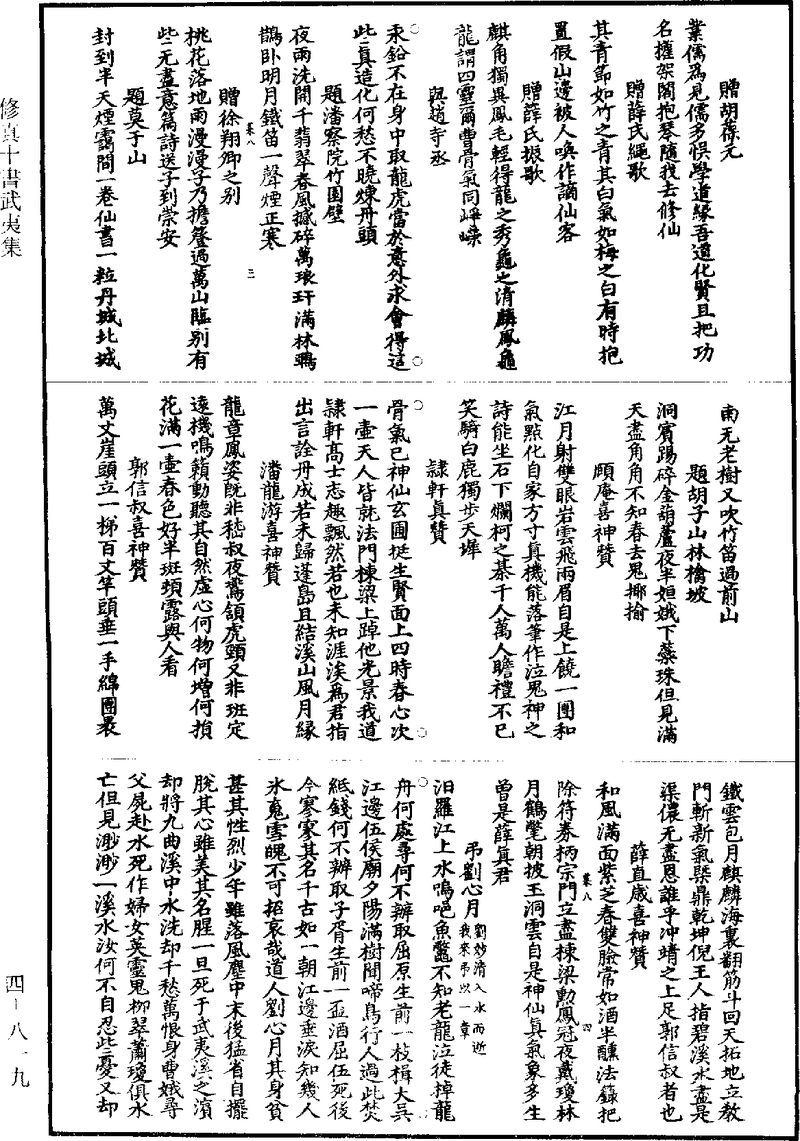 贈胡葆元
業儒爲見儒多悞學道緣吾道化賢且把功
名摧架閣抱琴隨我去修仙
贈薛氏繩歌
其青節如竹之青其白氣如梅之白有時抱
置假山邊被人喚作謫仙客
贈薛氏振歌
麒角獨異鳳毛輕得龍之秀龜之清麟鳳龜
龍謂四靈爾曹骨氣同崢嶸
呈趙寺丞
汞鉛不在身中取龍虎當於意外求會得這
些眞造化何愁不曉煉丹頭
題潘察院竹園壁
夜雨洗開千翡翠春風撼碎萬琅玕滿林鴉
鵲卧明月鐵笛一聲煙正寒
菉八
三
贈徐翔卿之别
桃花落地雨漫漫子乃擔簦過萬山臨别有
些无盡意篇詩送子到崇安
題莫于山
封到半天煙靄間一卷仙書一粒丹城北城
南无老樹又吹竹笛過前山
題胡子山林檎坡
洞賓踢碎金葫蘆夜半姮娥下蘂珠但見滿
天盡角角不知春去鬼揶揄
頤庵喜神贊
江月射雙眼岩雲飛兩眉自是上饒一團和
氣點化自家方寸眞機能落筆作泣鬼神之
詩能坐石下爛柯之棊千人萬人瞻禮不已
笑騎白鹿獨步天墀
隷軒眞贊
骨氣已神仙玄圃挺生賢面上四時春心次
一壷天人皆就法門棟梁上踔他光景我道
隷軒髙士志趣飄然若也未知涯涘爲君指
出言詮丹成若未歸蓬島且結溪山風月縁
潘龍游喜神贊
龍章鳳姿旣非嵇叔夜鷰頷虎頸又非班定
遠機鳴籟動聽其自然虛心何物何增何損
花滿一壷春色好半班頭露與人看
郭信叔喜神贊
萬丈崖頭立一梯百丈竿頭垂一手綿團裹
鐵雲包月麒麟海裏翻筋斗回天拓地立教
門斬新氣槩鼎乾坤倪王人指碧溪水盡是
渠儂无盡恩誰乎冲靖之上足郭信叔者也
薛直歲喜神贊
和風滿面紫芝春雙臉常如酒半醺法籙把
菉八
四
除符券柄宗門立盡棟梁勳鳳冠夜戴瓊林
月鶴氅朝披王洞雲自是神仙眞氣象多生
曽是薛眞君
弔劉心月
劉妙清入水而逝
我來弔以一章
汨羅江上水鳴咽魚鼈不知老龍泣徒掉龍
舟何處尋何不辨取屈原生前一枝楫大吴
江邊伍侯廟夕陽滿樹聞啼鳥行人過此焚
紙錢何不辨取子胥生前一盃酒屈伍死後
今寥寥其名千古如一朝江邊垂淚知幾人
氷䰟雪魄不可招哀哉道人劉心月其身貧
甚其性烈少年雖落風塵中末後猛省自擺
脫其心雖美其名腥一旦死于武夷溪之濱
却將九曲溪中水洗却千愁萬恨身曹娥尋
父屍赴水死作婦女英靈鬼柳翠蕭瓊俱水
亡但見渺渺一溪水汝何不自忍些憂又却
修真十書武夷集
四-八一九